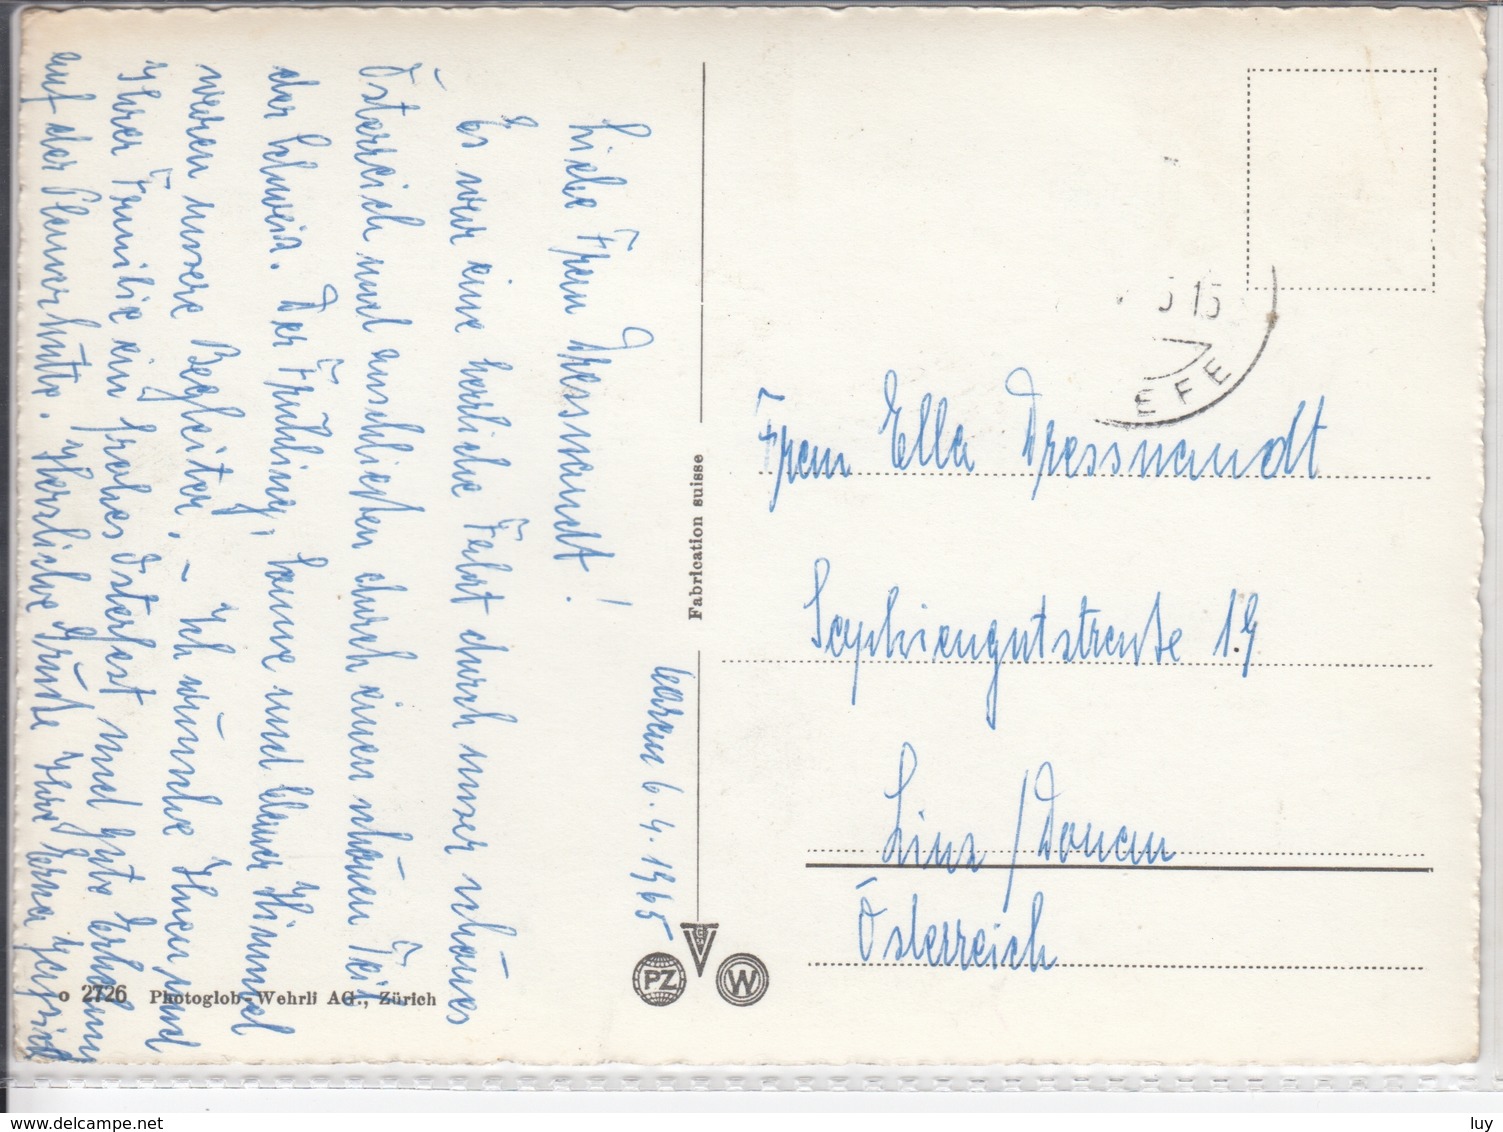 Locarno 6.4.1965
Liebe Frau Dressnandt!
Es war eine herrliche Fahrt durch unser schönes
Österreich und anschließend durch einen schönen Teil
der Schweiz. Der Frühling, Sonne und blauer Himmel
waren unsere Begleiter. - Ich wünsche Ihnen und
Ihrer Familie ein frohes Osterfest und gute Erholung
auf der Planerhütte. Herzliche Grüße Ihre Erna
Fabrication suisse
EFE
5 15
Frau Ella Dressnandt
Sophiengutstraße 19
Linz/Donau
Österreich
PZ
W
o 2726 Photoglob-Wehrli AG., Zürich
luy
www.delcampe.net